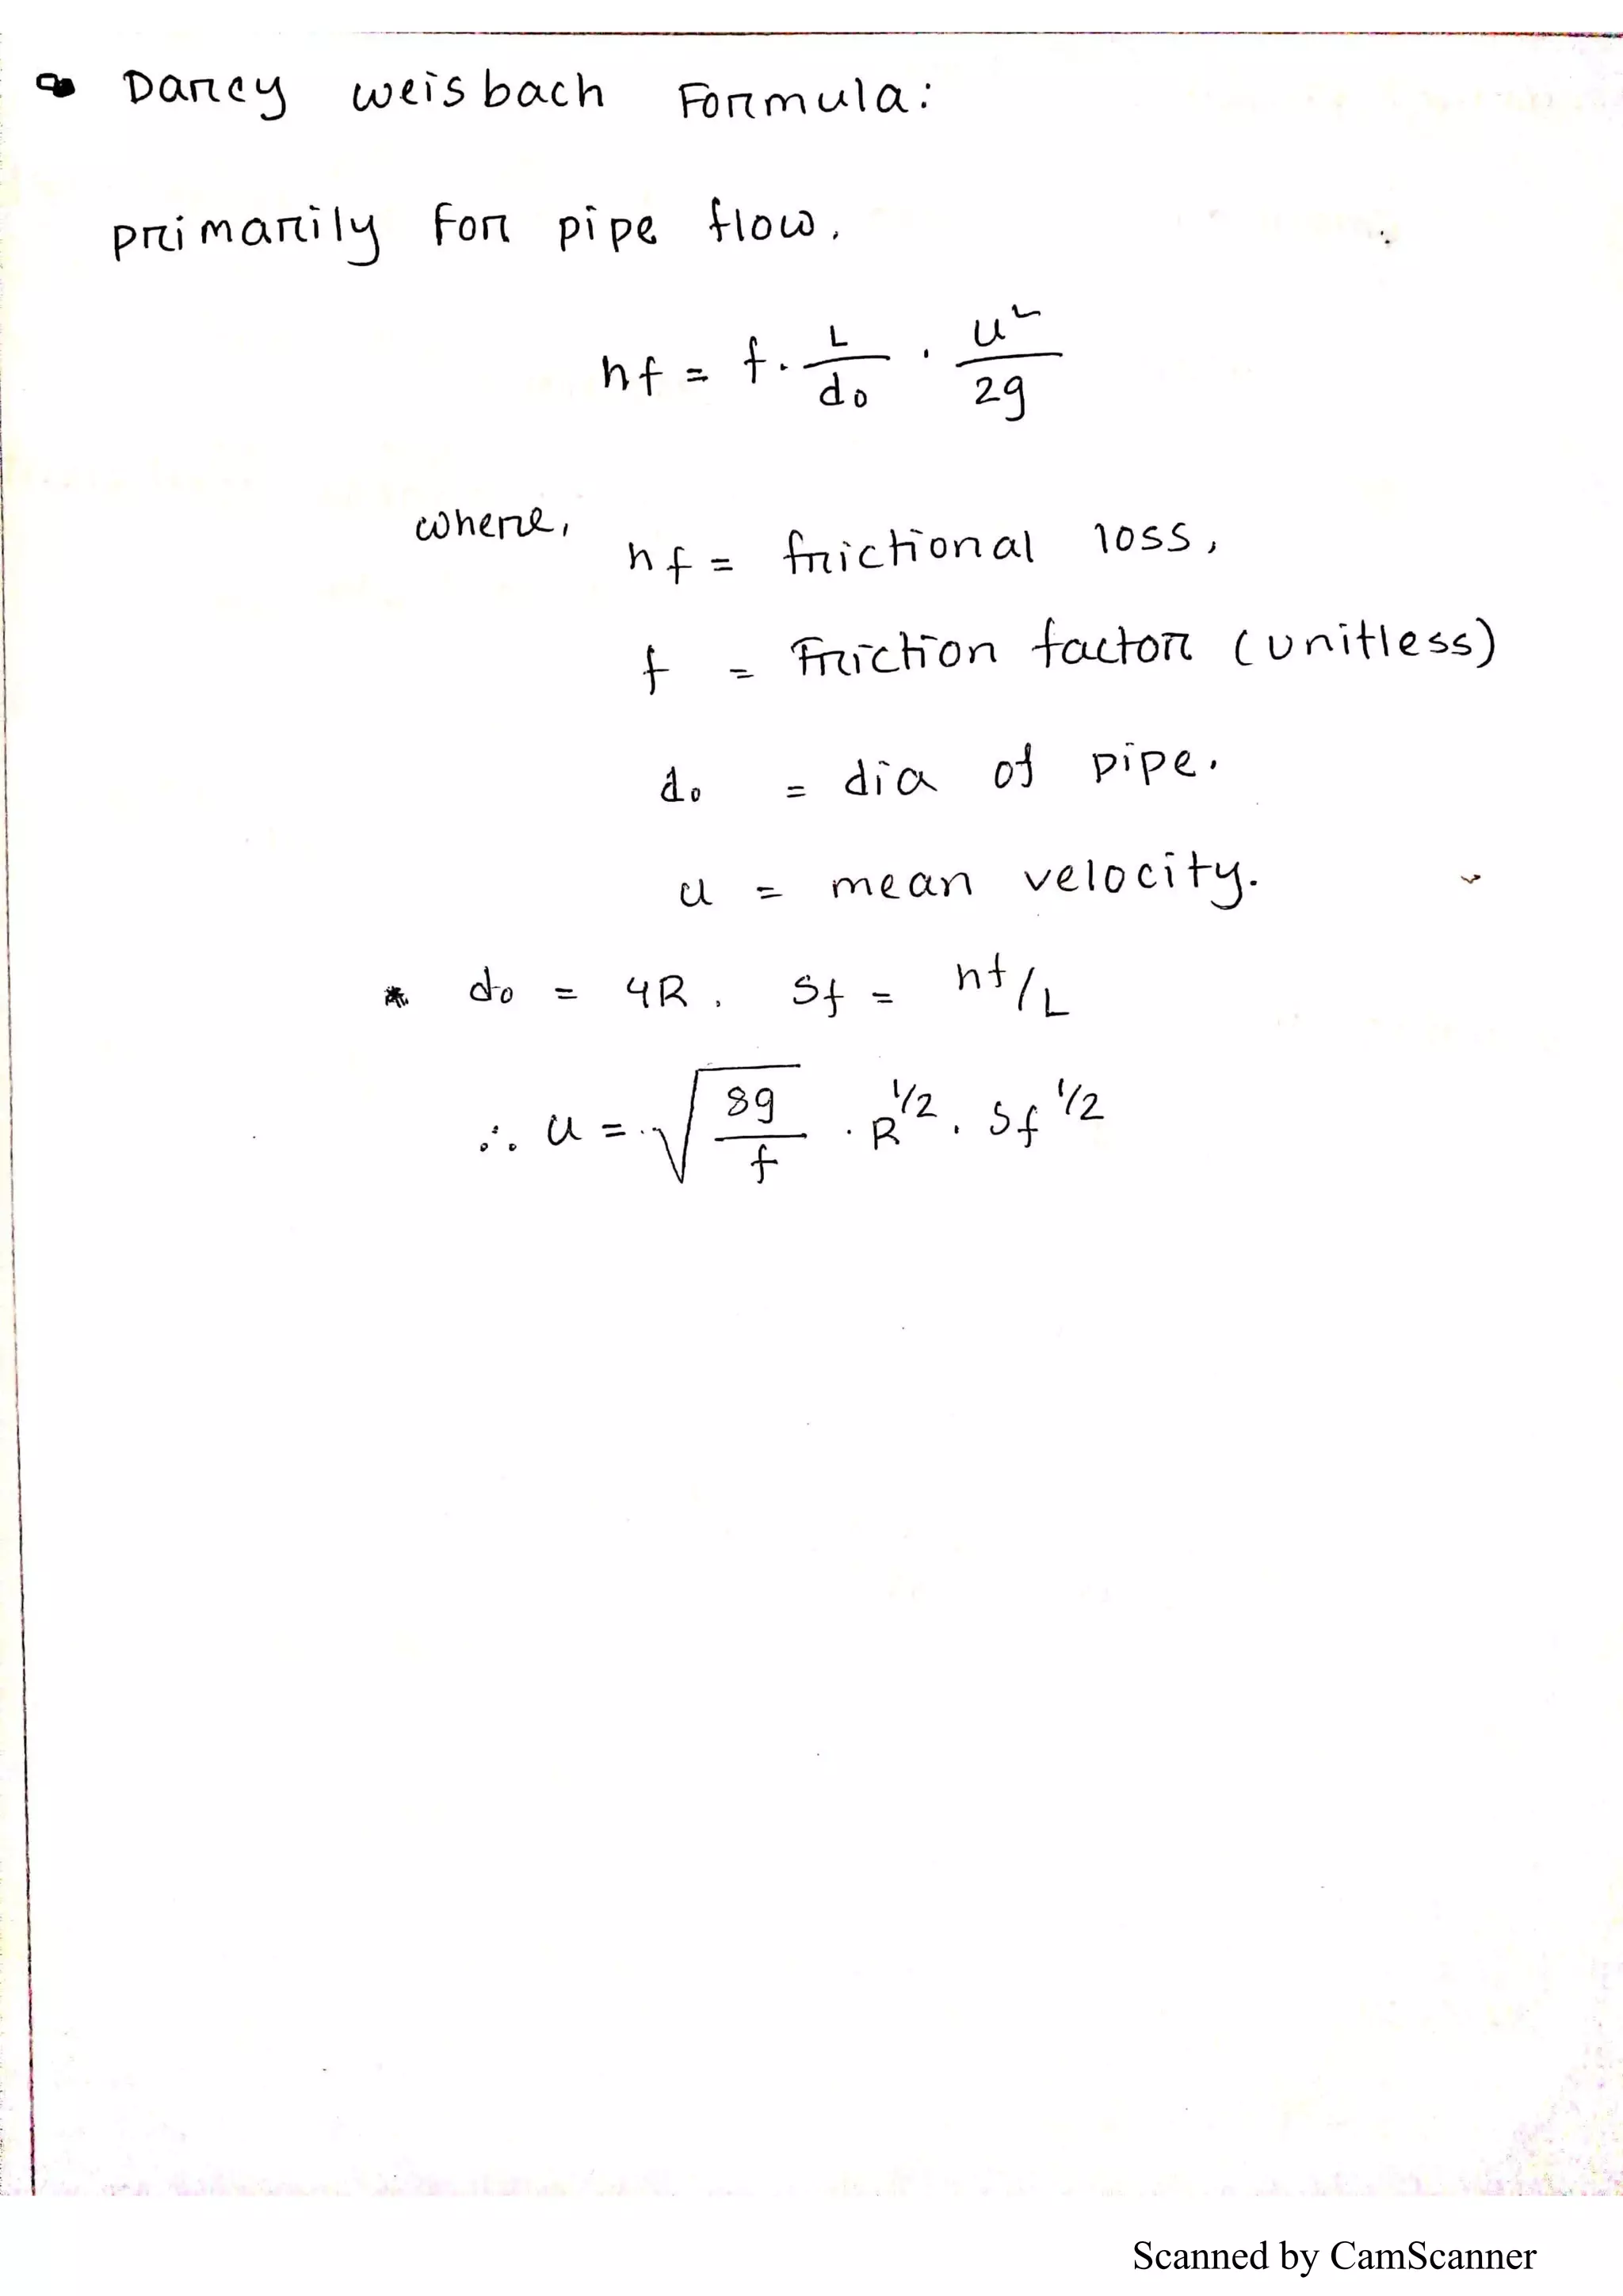 Darcy weisbach Formula:
primarily For pipe flow.
hf = f · L/d₀ · u²/2g
where,
hf = frictional loss,
f = Friction factor (unitless)
d₀ = dia of pipe.
u = mean velocity.
* d₀ = 4R, Sf = hf/L
∴ u = √(8g/f) · R^1/2 · Sf^1/2
Scanned by CamScanner